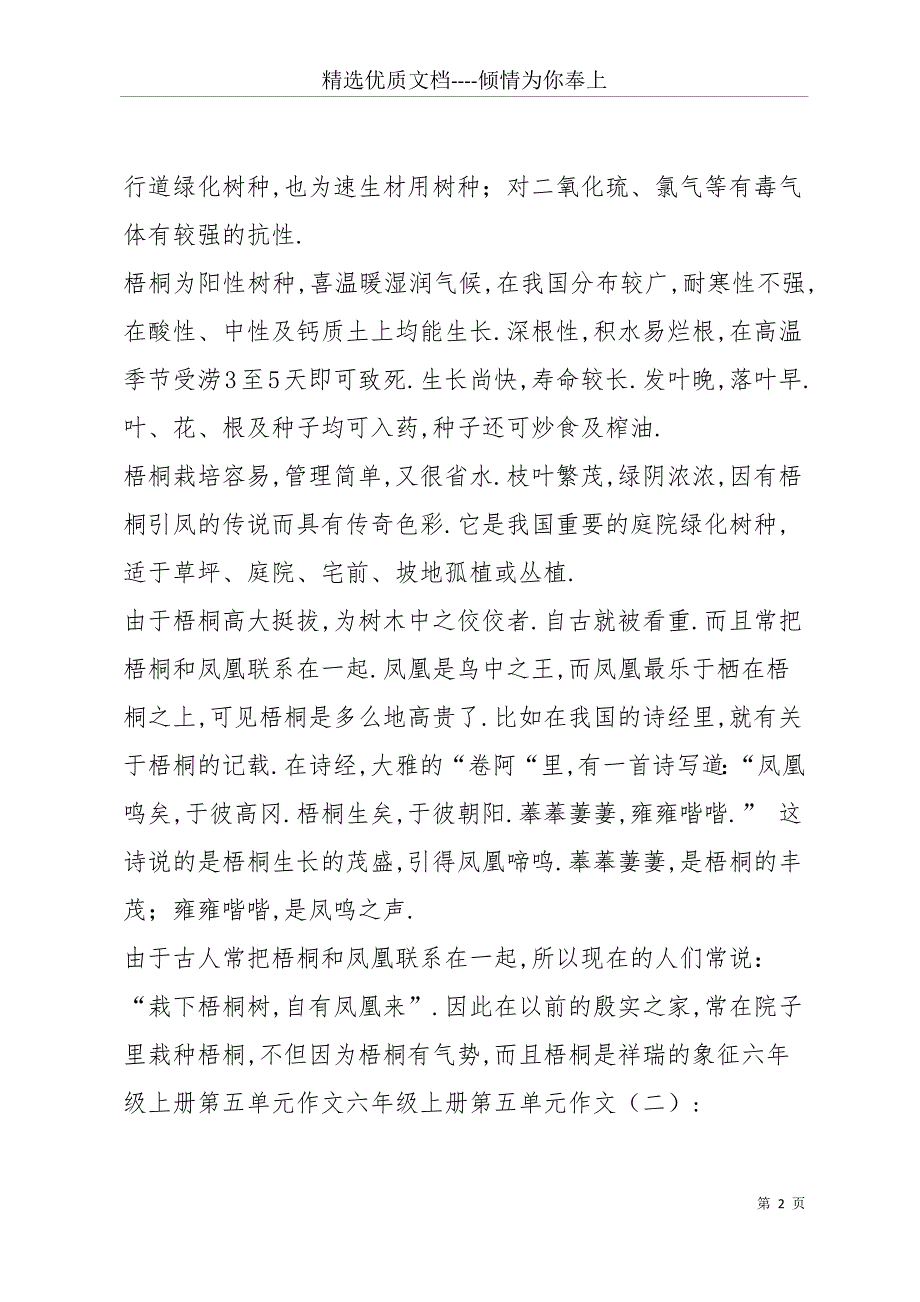 精选优质文档----倾情为你奉上
行道绿化树种,也为速生材用树种；对二氧化琉、氯气等有毒气
体有较强的抗性.
梧桐为阳性树种,喜温暖湿润气候,在我国分布较广,耐寒性不强,
在酸性、中性及钙质土上均能生长.深根性,积水易烂根,在高温
季节受涝3至5天即可致死.生长尚快,寿命较长.发叶晚,落叶早.
叶、花、根及种子均可入药,种子还可炒食及榨油.
梧桐栽培容易,管理简单,又很省水.枝叶繁茂,绿阴浓浓,因有梧
桐引凤的传说而具有传奇色彩.它是我国重要的庭院绿化树种,
适于草坪、庭院、宅前、坡地孤植或丛植.
由于梧桐高大挺拔,为树木中之佼佼者.自古就被看重.而且常把
梧桐和凤凰联系在一起.凤凰是鸟中之王,而凤凰最乐于栖在梧
桐之上,可见梧桐是多么地高贵了.比如在我国的诗经里,就有关
于梧桐的记载.在诗经,大雅的“卷阿“里,有一首诗写道:“凤凰
鸣矣,于彼高冈.梧桐生矣,于彼朝阳.菶菶萋萋,雍雍喈喈.” 这
诗说的是梧桐生长的茂盛,引得凤凰啼鸣.菶菶萋萋,是梧桐的丰
茂；雍雍喈喈,是凤鸣之声.
由于古人常把梧桐和凤凰联系在一起,所以现在的人们常说：
“栽下梧桐树,自有凤凰来”.因此在以前的殷实之家,常在院子
里栽种梧桐,不但因为梧桐有气势,而且梧桐是祥瑞的象征六年
级上册第五单元作文六年级上册第五单元作文（二）:
第 2 页